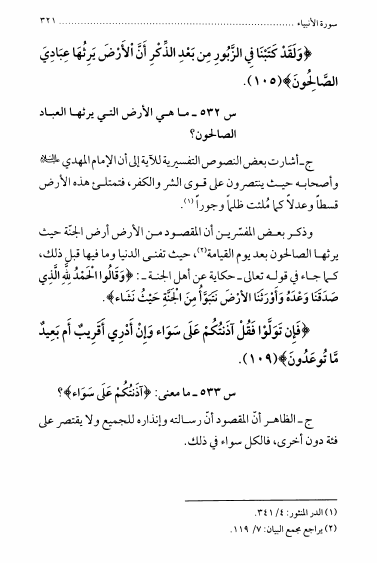 سورة الأنبياء ........................................ ٣٢١
﴿وَلَقَدْ كَتَبْنَا فِي الزَّبُورِ مِن بَعْدِ الذِّكْرِ أَنَّ الْأَرْضَ يَرِثُهَا عِبَادِيَ
الصَّالِحُونَ﴾(١٠٥).
س ٥٣٢ ـ ما هي الأرض التي يرثها العباد
الصالحون؟
ج ـ أشارت بعض النصوص التفسيرية للآية إلى أن الإمام المهدي
وأصحابه حيث ينتصرون على قوى الشر والكفر، فتمتلئ هذه الأرض
قسطاً وعدلاً كما مُلئت ظلماً وجوراً(١).
وذكر بعض المفسّرين أن المقصود من الأرض أرض الجنّة حيث
يرثها الصالحون بعد يوم القيامة(٢)، حيث تفنى الدنيا وما فيها قبل ذلك،
كما جاء في قوله تعالى ـ حكاية عن أهل الجنة ـ: ﴿وَقَالُوا الْحَمْدُ لِلَّهِ الَّذِي
صَدَقَنَا وَعْدَهُ وَأَوْرَثَنَا الأَرْضَ نَتَبَوَّأُ مِنَ الْجَنَّةِ حَيْثُ نَشَاء﴾.
﴿فَإِن تَوَلَّوْا فَقُلْ آذَنتُكُمْ عَلَى سَوَاء وَإِنْ أَدْرِي أَقَرِيبٌ أَم بَعِيدٌ
مَّا تُوعَدُونَ﴾(١٠٩).
س ٥٣٣ ـ ما معنى: ﴿آذَنتُكُمْ عَلَى سَوَاء﴾؟
ج ـ الظاهر أنّ المقصود أنّ رسالته وإنذاره للجميع ولا يقتصر على
فئة دون أخرى، فالكل سواء في ذلك.
(١) الدر المنثور: ٤/ ٣٤١.
(٢) يراجع مجمع البيان: ٧/ ١١٩.